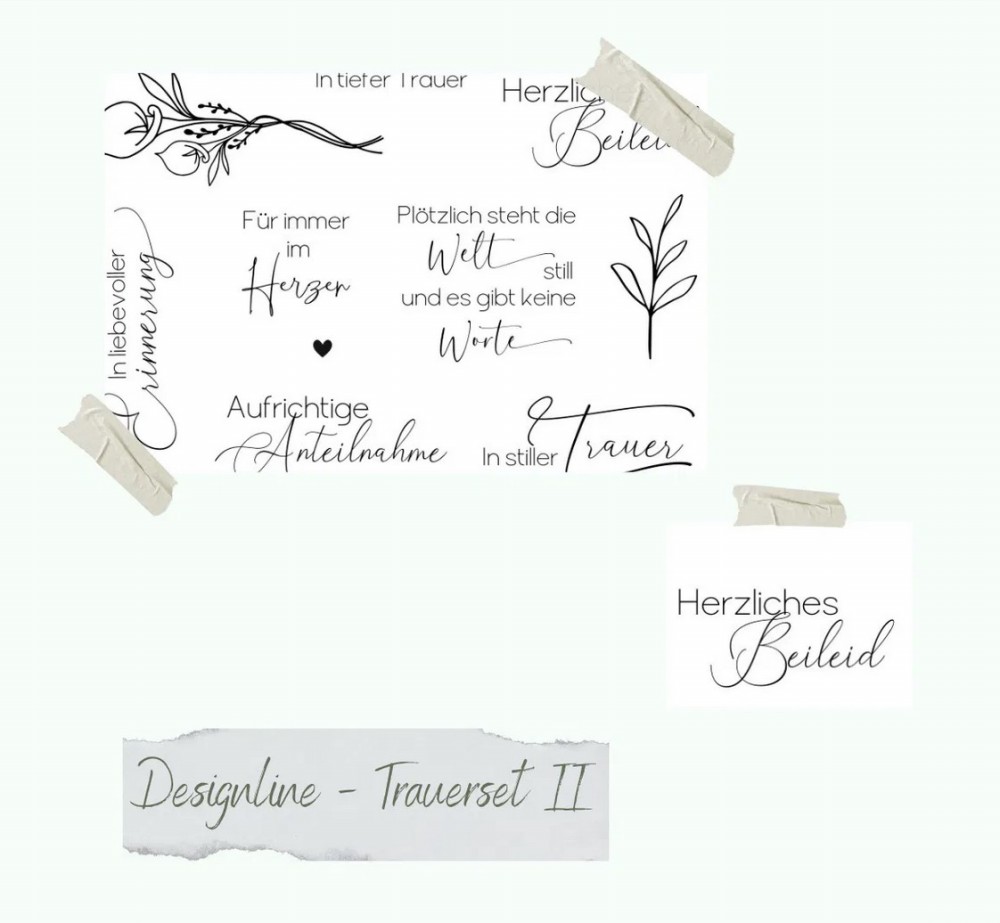 In tiefer Trauer
Herzlic
Beileid
In liebevoller
Erinnerung
Für immer
im
Herzen
Plötzlich steht die
Welt
still
und es gibt keine
Worte
Aufrichtige
Anteilnahme
In stiller Trauer
Herzliches
Beileid
Designline - Trauerset II